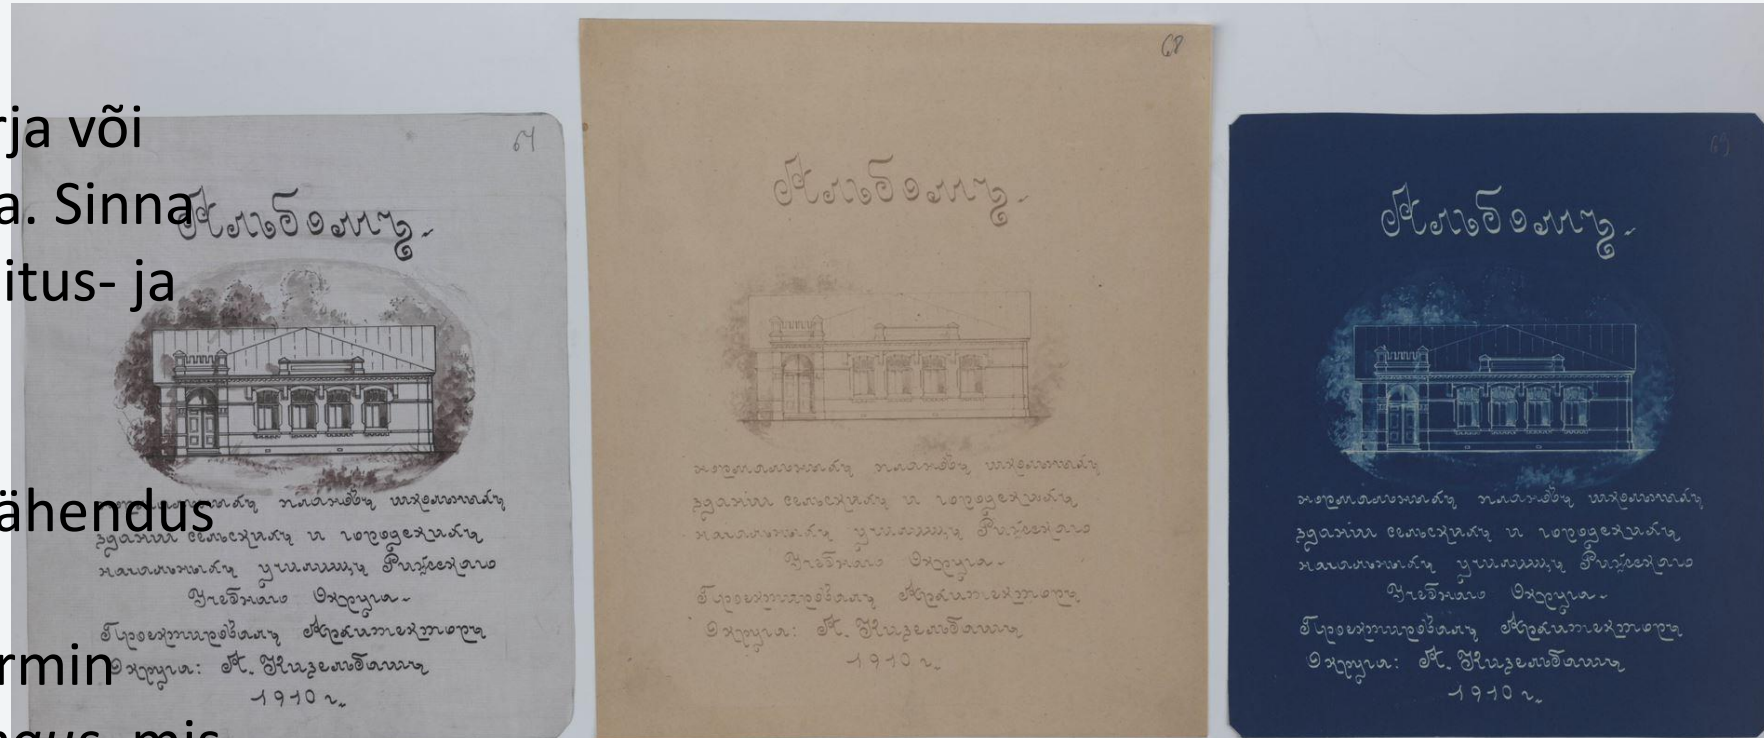 rja või
a. Sinna
itus- ja
ähendus
rmin
mis
67
Альбомъ.
нормальныхъ плановъ школьныхъ
зданій сельскихъ и городскихъ
начальныхъ училищъ Рижскаго
Учебнаго Округа.
Проектировалъ Архитекторъ
Округа: А. Кизельбашъ
1910 г.
68
Альбомъ.
нормальныхъ плановъ школьныхъ
зданій сельскихъ и городскихъ
начальныхъ училищъ Рижскаго
Учебнаго Округа.
Проектировалъ Архитекторъ
Округа: А. Кизельбашъ
1910 г.
69
Альбомъ.
нормальныхъ плановъ школьныхъ
зданій сельскихъ и городскихъ
начальныхъ училищъ Рижскаго
Учебнаго Округа.
Проектировалъ Архитекторъ
Округа: А. Кизельбашъ
1910 г.